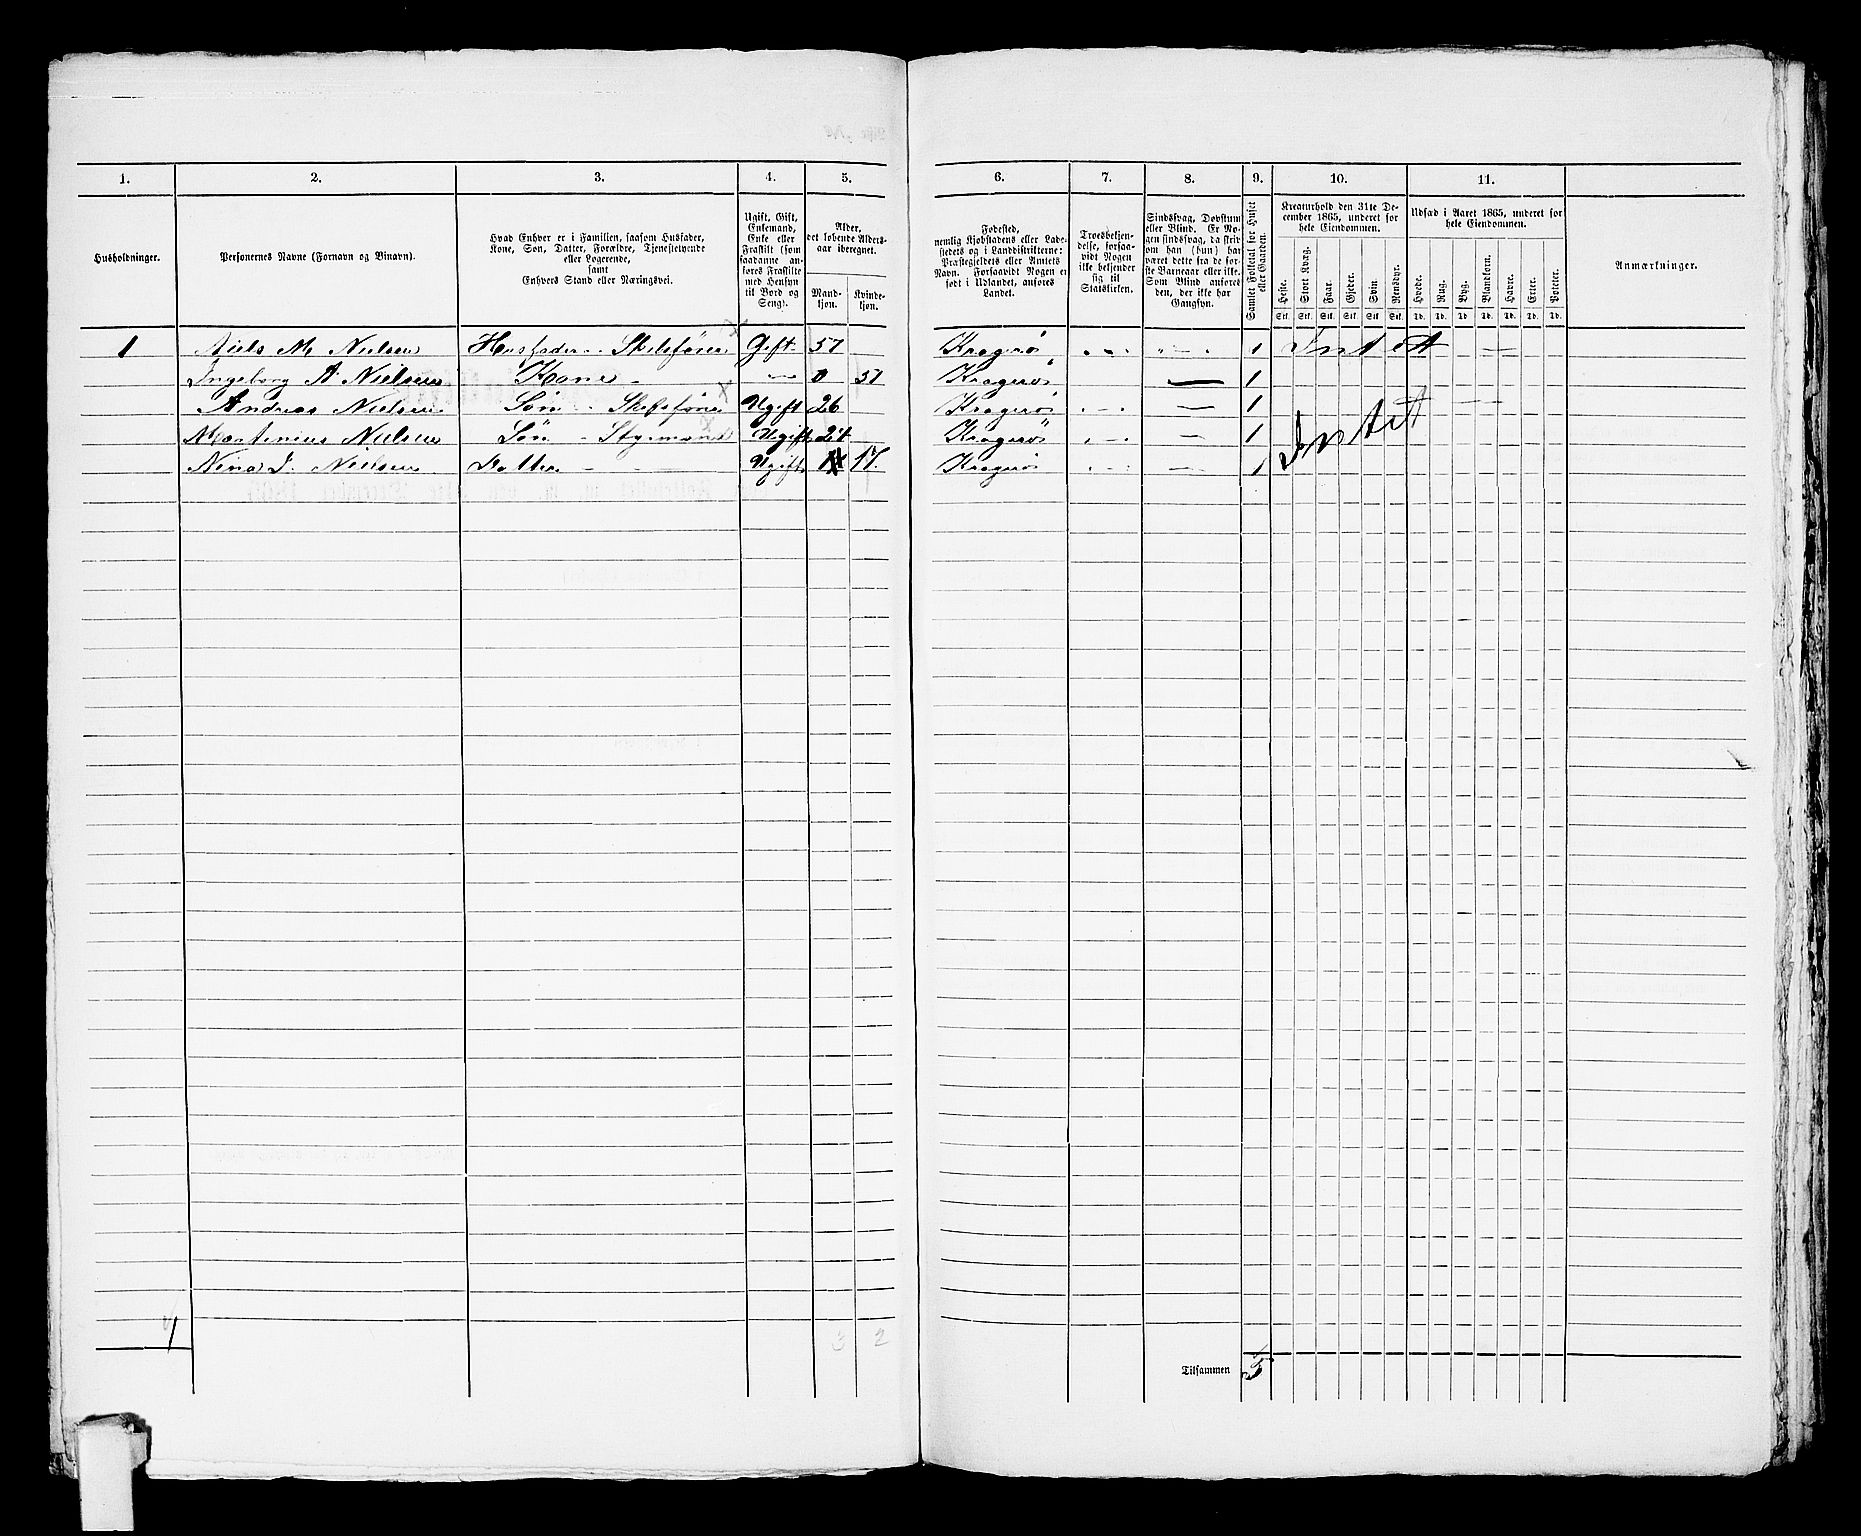 1. 2. 3. 4. 5. 6. 7. 8. 9. 10. 11.
Husholdninger.
Personernes Navne (Fornavn og Binavn).
Hvad Enhver er i Familien, saasom Husfader,
Kone, Søn, Datter, Forældre, Tjenestetyende
eller Logerende,
samt
Enhvers Stand eller Næringsvei.
Ugift, Gift,
Enkemand,
Enke eller
Fraskilt (som
saadanne an-
føres Fraskilte
med Hensyn
til Bord og
Seng).
Alder,
det løbende Alders-
aar iberegnet.
Mand-
kjøn.
Kvinde-
kjøn.
Fødested,
nemlig Kjøbstadens eller Lade-
stedets og i Landdistrikterne:
Præstegjeldets eller Amtets
Navn. Forsaavidt Nogen er
født i Udlandet, anføres
Landet.
Troesbekjen-
delse, forsaa-
vidt Nogen
ikke bekjender
sig til
Statskirken.
Sindssvag, Døvstum
eller Blind. Er No-
gen sindssvag, da skri-
ves om han (hun) har
været dette fra de før-
ste Barneaar eller ikke.
Som Blind anføres
den, der ikke har
Gangsyn.
Samlet Folketal for Huset
eller Gaarden.
Kreaturhold den 31te De-
cember 1865, underet for
hele Eiendommen.
Heste. Stort Kvæg. Faar. Gjeder. Svin. Rensdyr.
Stk. Stk. Stk. Stk. Stk. Stk.
Udsæd i Aaret 1865, underet for
hele Eiendommen.
Hvede. Rug. Byg. Blandkorn. Havre. Erter. Poteter.
Td. Td. Td. Td. Td. Td. Td.
Anmærkninger.
1 Niels M Nielsen Husfader - Gift 57 Kragerø 1 Intet
Ingeborg A Nielsen Kone - 0 57 Kragerø 1
Andreas Nielsen Søn - Ugift 26 Kragerø 1 Intet
Martinius Nielsen Søn - Styrmand Ugift 24 Kragerø 1
Nina J. Nielsen Datter - - Ugift 17. Kragerø 1
1 3 2
Tilsammen 5